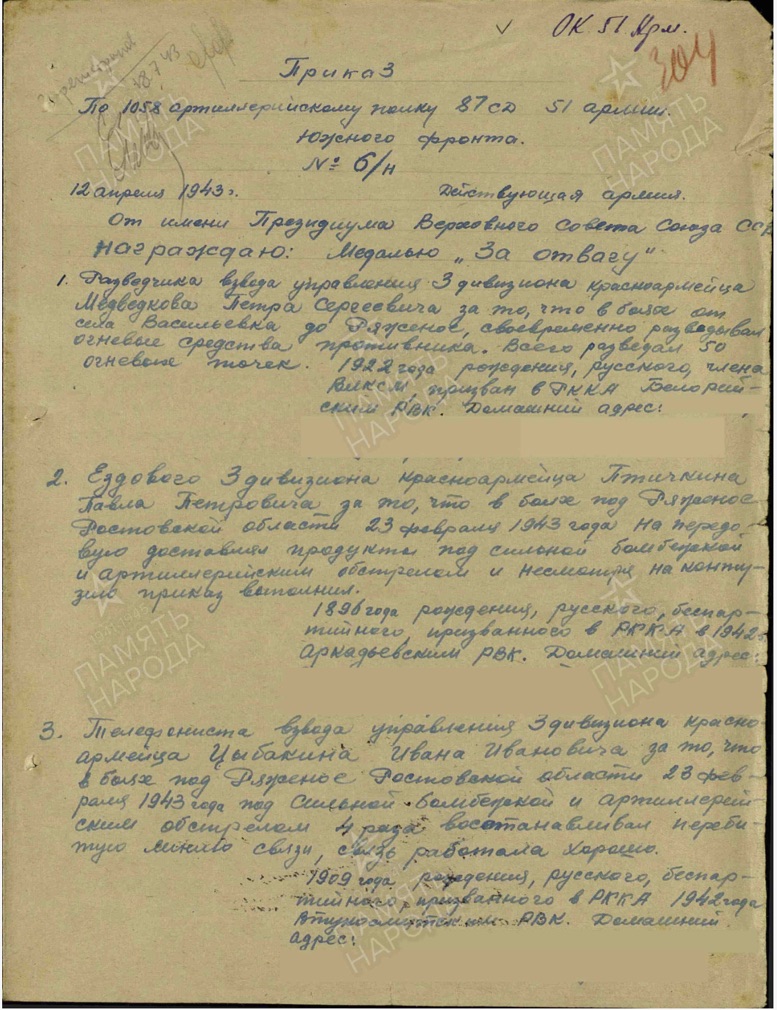 ОК 51 Арм.
304
28.7.43
Приказ
По 1058 артиллерийскому полку 87 сд 51 армии.
Южного фронта.
№ 6/н
12 апреля 1943 г. Действующая армия.
От имени Президиума Верховного Совета Союза ССР
награждаю: Медалью „За отвагу"
1. Разводчика взвода управления 3 дивизиона красноармейца
Медведкова Петра Сергеевича за то, что в боях от
села Васильевка до Ряженое, своевременно разведывал
огневые средства противника. Всего разведал 50
огневых точек. 1922 года рождения, русского, члена
ВЛКСМ, призван в РККА Белорий-
ским РВК. Домашний адрес:
2. Ездового 3 дивизиона красноармейца Птичкина
Павла Петровича за то, что в боях под Ряженое
Ростовской области 23 февраля 1943 года на передо-
вую доставлял продукты под сильной бомбежкой
и артиллерийским обстрелом и несмотря на конту-
зию приказ выполнил.
1896 года рождения, русского, беспар-
тийного, призванного в РККА в 1942 г.
Аркадьевским РВК. Домашний адрес:
3. Телефониста взвода управления 3 дивизиона красно-
армейца Цыбакина Ивана Ивановича за то, что
в боях под Ряженое Ростовской области 23 фев-
раля 1943 года под сильной бомбежкой и артиллерий-
ским обстрелом 4 раза восстанавливал переби-
тую линию связи, связь работала хорошо.
1909 года рождения, русского, беспар-
тийного, призванного в РККА 1942 года
РВК. Домашний
адрес:
ПАМЯТЬ НАРОДА
ПАМЯТЬ НАРОДА
ПАМЯТЬ НАРОДА
ПАМЯТЬ НАРОДА
ПАМЯТЬ НАРОДА
ПАМЯТЬ НАРОДА